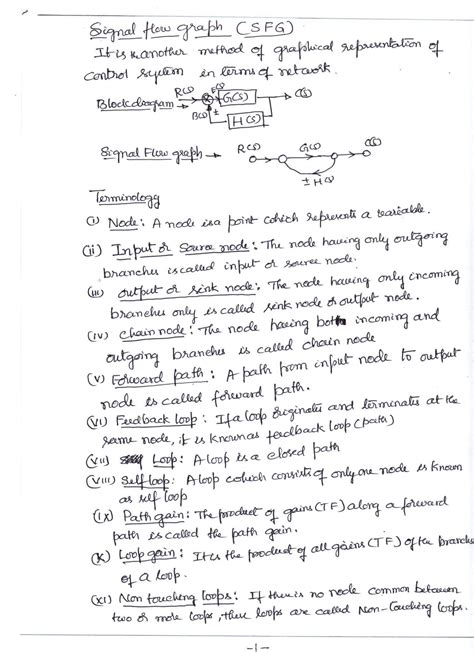 Signal flow graph (SFG)
It is another method of graphical representation of
control system in terms of network.
R(s) E(s) G(s) C(s)
Block diagram →
B(s) ± H(s)
Signal Flow graph → R(s) G(s) C(s)
± H(s)
Terminology
(i) Node: A node is a point which represents a variable.
(ii) Input or Source node: The node having only outgoing
branches is called input or source node.
(iii) output or sink node: The node having only incoming
branches only is called sink node or output node.
(iv) chain node: The node having both incoming and
outgoing branches is called chain node
(v) Forward path: A path from input node to output
node is called forward path.
(vi) Feedback loop: If a loop originates and terminates at the
same node, it is known as feedback loop (path)
(vii) Loop: A loop is a closed path
(viii) Self loop: A loop which consists of only one node is known
as self loop
(ix) Path gain: The product of gains (TF) along a forward
path is called the path gain.
(x) Loop gain: It is the product of all gains (TF) of the branches
of a loop.
(xi) Non touching loops: If there is no node common between
two or more loops, these loops are called Non-touching loops.
-1-